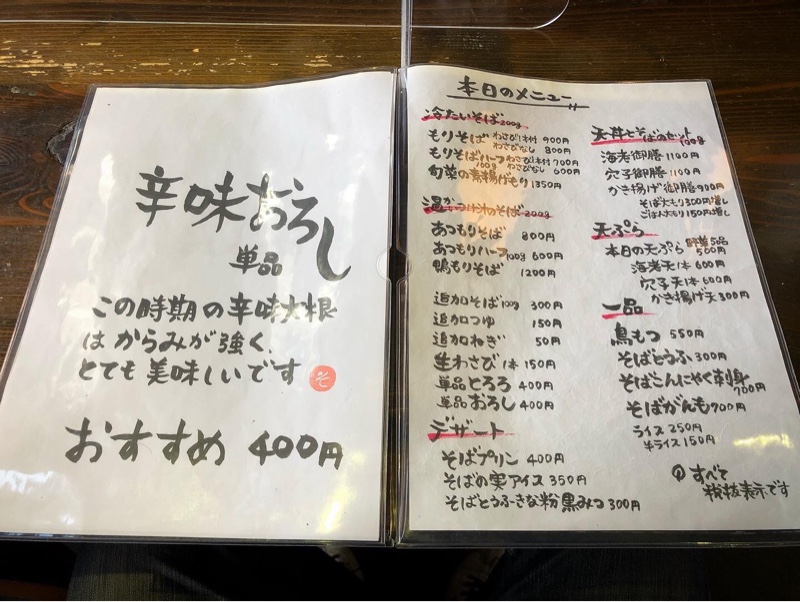 辛味おろし
単品
この時期の辛味大根
は からみが強く、
とても美味しいです
そ
おすすめ 400円
本日のメニュー
冷たいそば200g
もりそば わさび1本付 900円
わさびなし 800円
もりそばハーフ 100g わさび1本付 700円
わさびなし 600円
旬菜の素揚げもり 1350円
温かいつけ汁のそば200g
あつもりそば 800円
あつもりハーフ100g 600円
鴨もりそば 1200円
追加そば100g 300円
追加つゆ 150円
追加ねぎ 50円
生わさび 1本 150円
単品とろろ 400円
単品おろし 400円
デザート
そばプリン 400円
そばの実アイス 350円
そばとうふきな粉 黒みつ 300円
天丼とそばのセット100g
海老御膳 1100円
穴子御膳 1100円
かき揚げ御膳 900円
そば大もり300円増し
ごはん大もり150円増し
天ぷら
本日の天ぷら 野菜5品 500円
海老天1本 600円
穴子天1本 600円
かき揚げ天 300円
一品
鳥もつ 550円
そばとうふ 300円
そばこんにゃく刺身 700円
そばがんも 700円
ライス 250円
半ライス 150円
すべて
税抜表示です